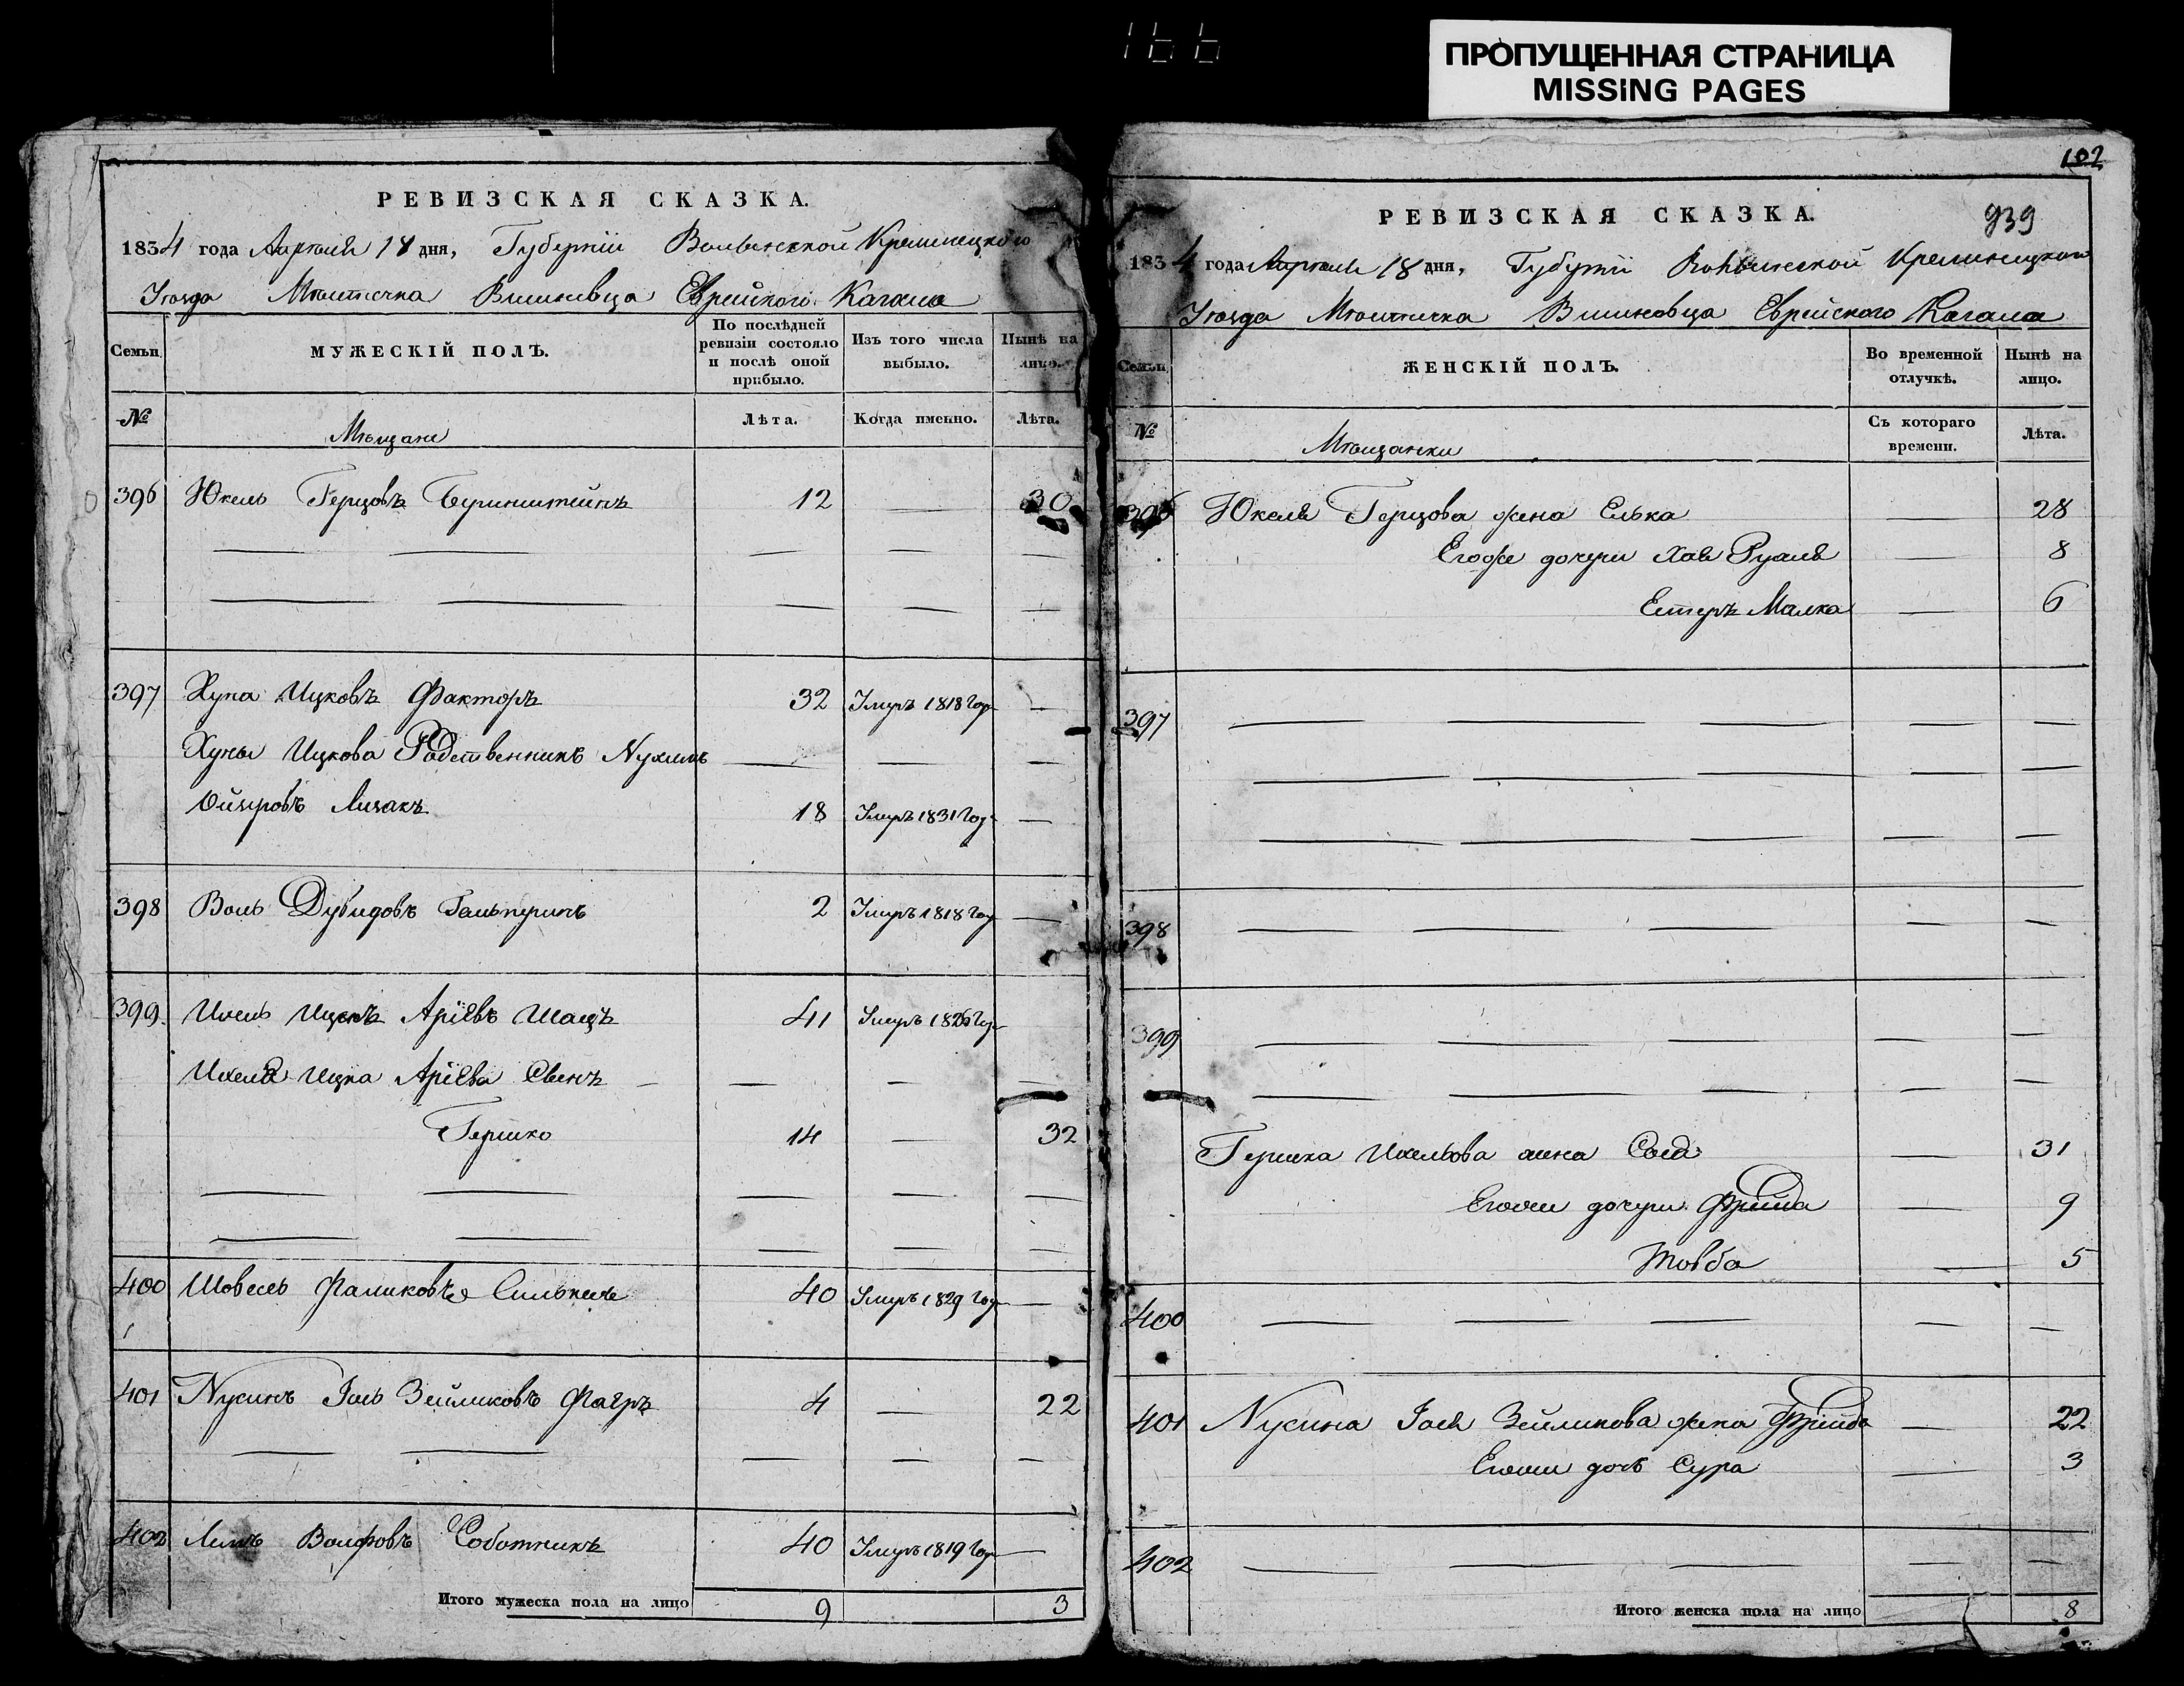 166
ПРОПУЩЕННАЯ СТРАНИЦА
MISSING PAGES
РЕВИЗСКАЯ СКАЗКА.
1834 года Апреля 18 дня, Губернiи Волынской Кременецкого
Уезда Местечка Вишневца Еврейского Кагала
Семьи
МУЖЕСКІЙ ПОЛЪ.
По послѣдней ревизіи состояло и послѣ оной прибыло.
Изъ того числа выбыло.
Нынѣ на лицо.
№ Мѣщане Лѣта. Когда именно. Лѣта.
396 Юкель Герцовъ Беринштейнъ 12 — 30
397 Хуна Ицковъ Факторъ 32 Умеръ 1818 Год —
Хуны Ицкова Родственникъ Нухимъ — — —
Ойзеровъ Лизакъ 18 Умеръ 1831 Год —
398 Воль Дувидовъ Гальперинъ 2 Умеръ 1818 Год —
399 Ихель Ицекъ Аріевъ Шацъ 41 Умеръ 1826 Год
Ихеля Ицка Аріева Сынъ — — — —
Гершко 14 — 32
400 Шовель Фаликовъ 40 Умеръ 1829 Год —
401 Нусинъ Іоль Зейликовъ Фаеръ 4 — 22
402 Волфовъ Соботникъ 40 Умеръ 1819 Год —
Итого мужеска пола на лицо 9 3
102
939
РЕВИЗСКАЯ СКАЗКА.
1834 года Апреля 18 дня, Губернiи Волынской Кременецкой
Уезда Местечка Вишневца Еврейского Кагала
Семьи
ЖЕНСКІЙ ПОЛЪ.
Во временной отлучкѣ.
Нынѣ на лицо.
№ Мѣщанки Съ котораго времени. Лѣта.
396 Юкеля Герцова жена Елька — 28
Егоже дочери Хая Рухля — 8
Естеръ Малка — 6
397
398
399
Гершка Ихельова жена Сося — 31
Егоже дочери Фрейда — 9
Товба — 5
400
401 Нусина Іоля Зейликова жена Фрейда — 22
Егоже дочь Сура — 3
402
Итого женска пола на лицо 8